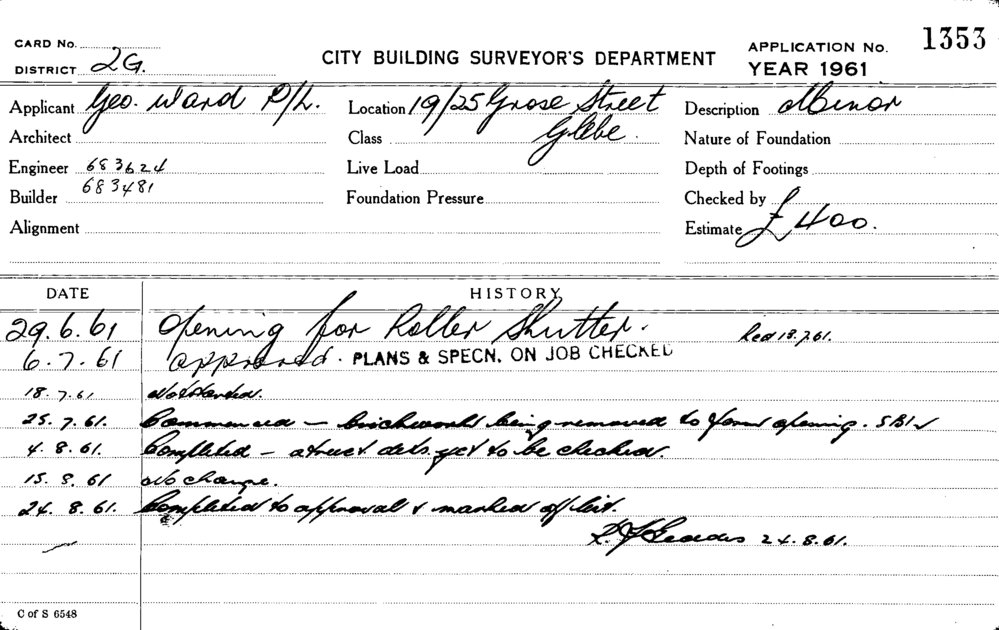 CARD No.
DISTRICT 2G.
CITY BUILDING SURVEYOR'S DEPARTMENT
APPLICATION No. 1353
YEAR 1961
Applicant Geo. Ward P/L. Location 19/25 Grose Street Description Minor
Architect Class Glebe. Nature of Foundation
Engineer 683624 Live Load Depth of Footings
Builder 683481 Foundation Pressure Checked by
Alignment Estimate £400.
DATE HISTORY
29.6.61 Opening for Roller Shutter. Red 18.7.61.
6.7.61 approved. PLANS & SPECN. ON JOB CHECKED
18.7.61 Not started.
25.7.61. Commenced – brickwork being removed to form opening.
4.8.61. Completed – struct dets. yet to be checked.
15.8.61 No change.
24.8.61. Completed to approval & marked off list.
24.8.61.
C of S 6548